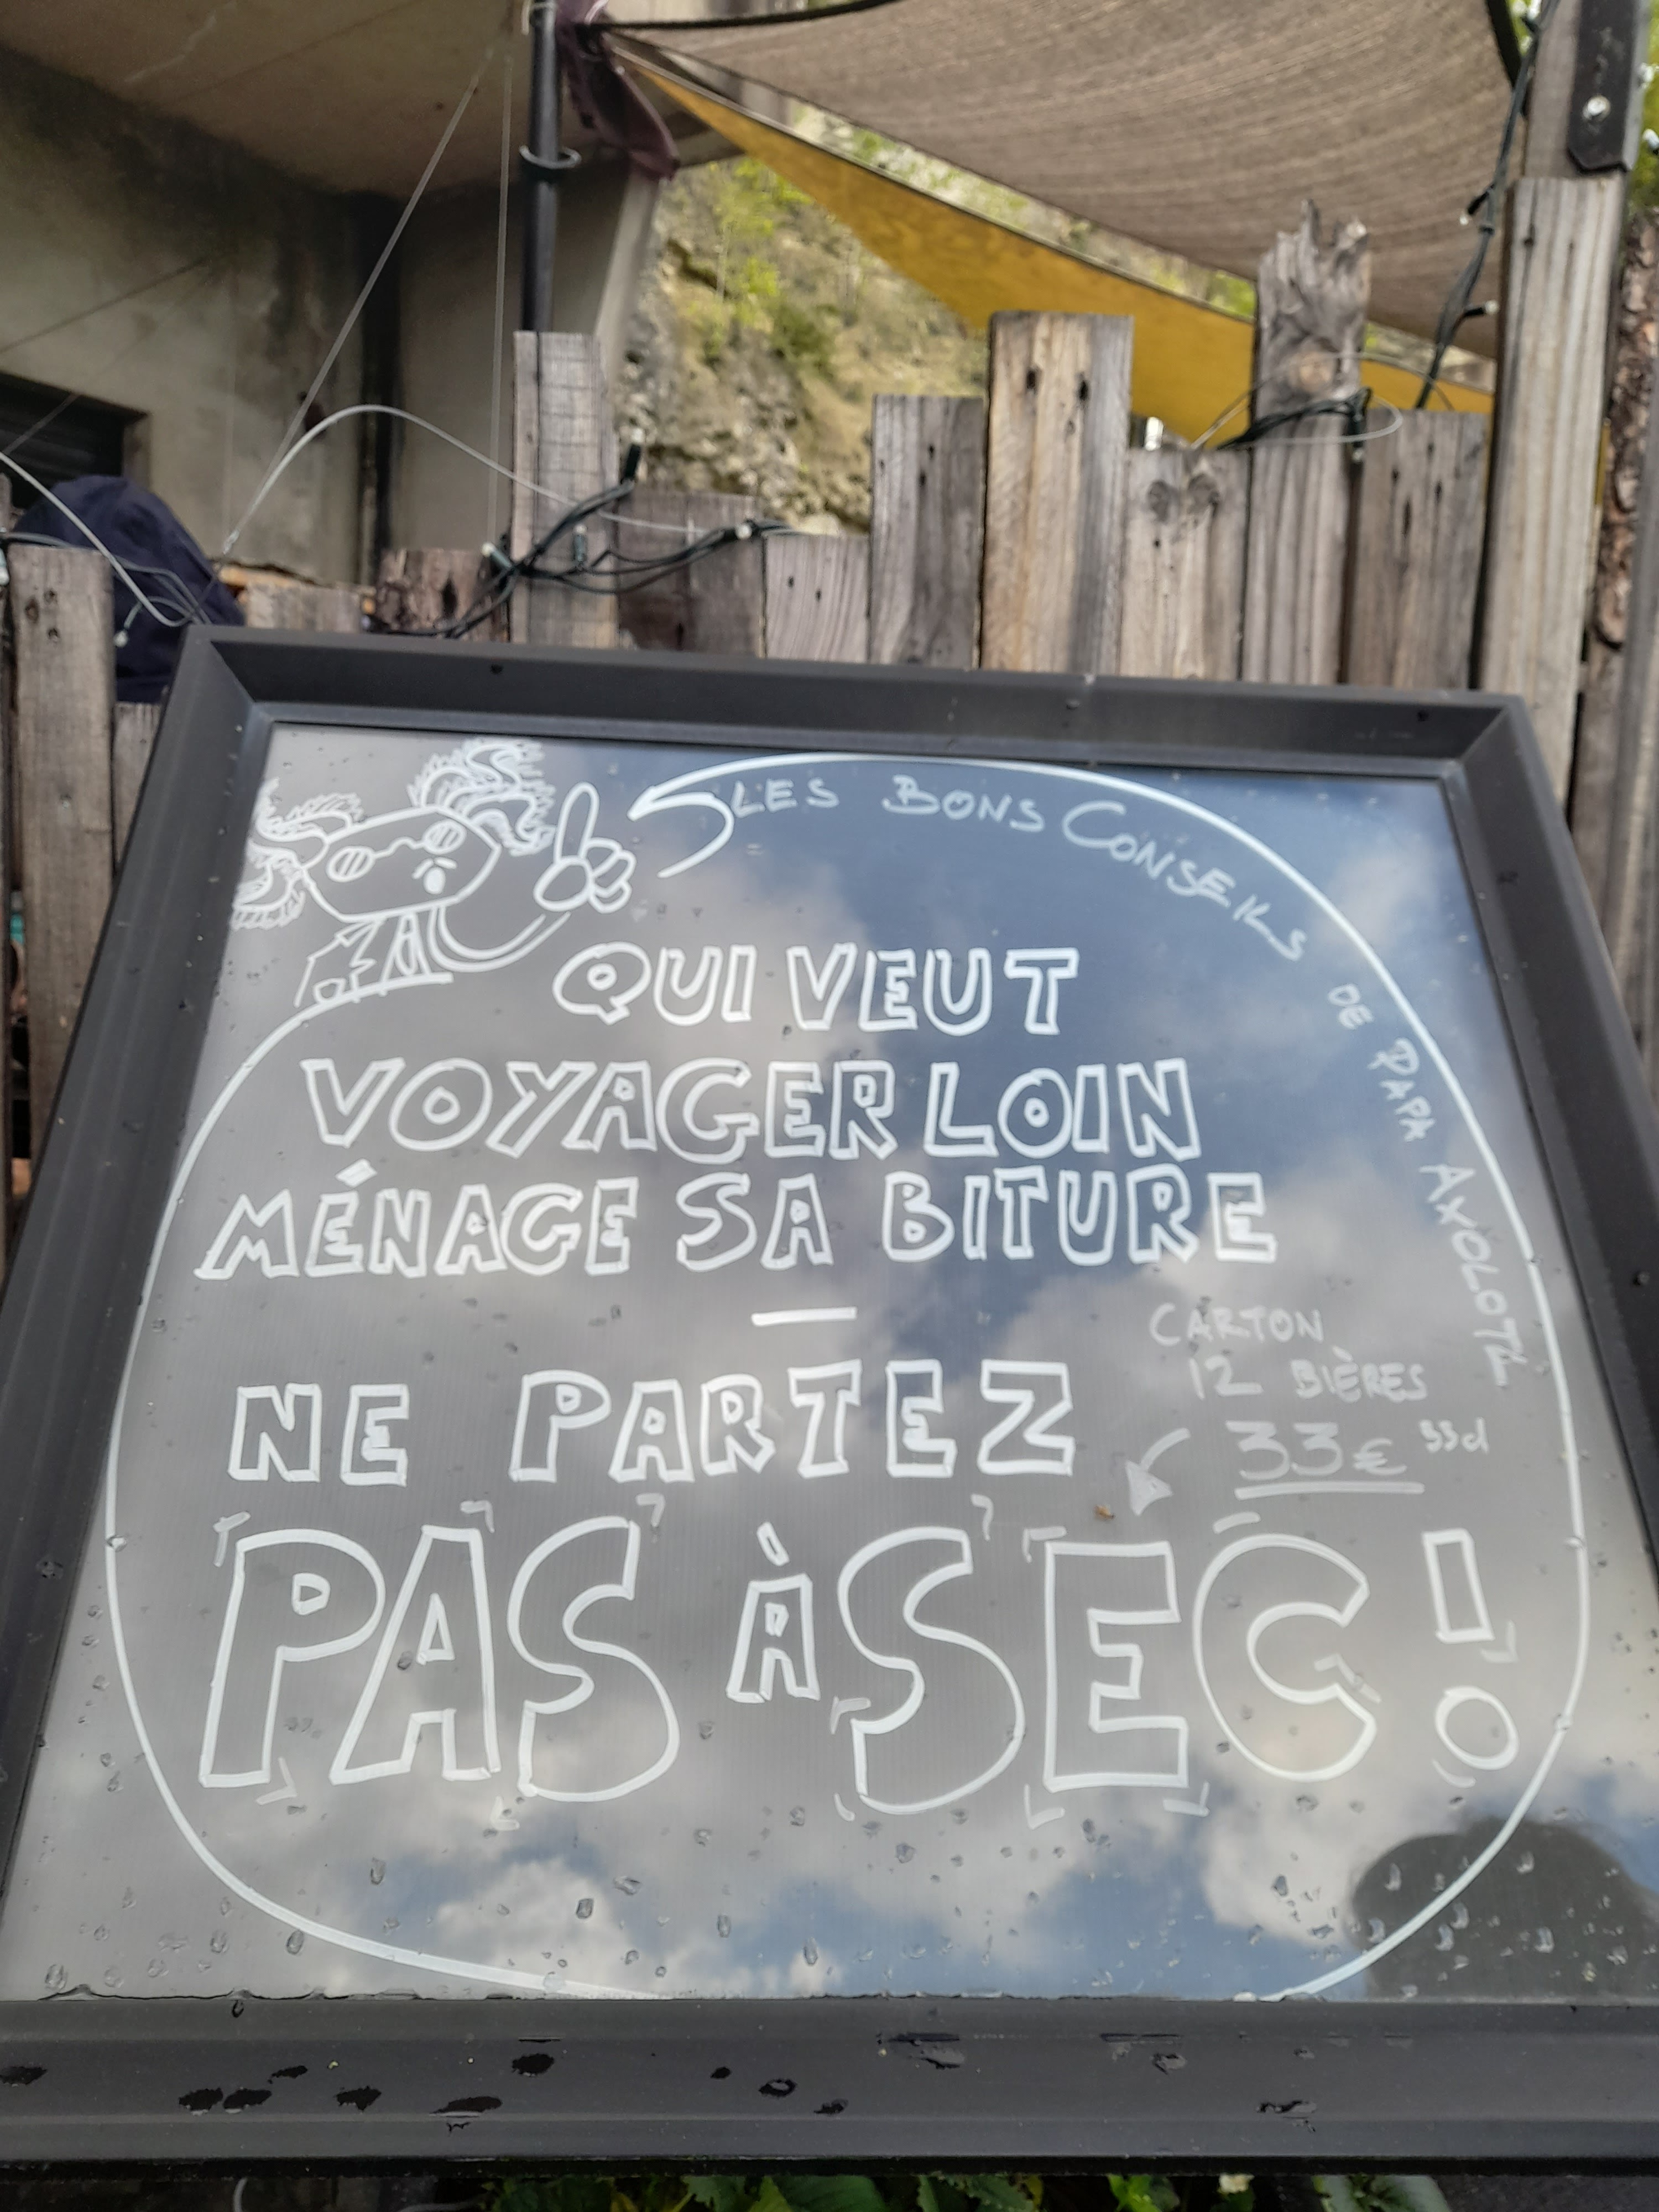 LES BONS CONSEILS DE PAPA AXOLOTL
QUI VEUT
VOYAGER LOIN
MÉNAGE SA BITURE
—
NE PARTEZ
CARTON
12 BIÈRES
33€ 33cl
PAS À SEC !